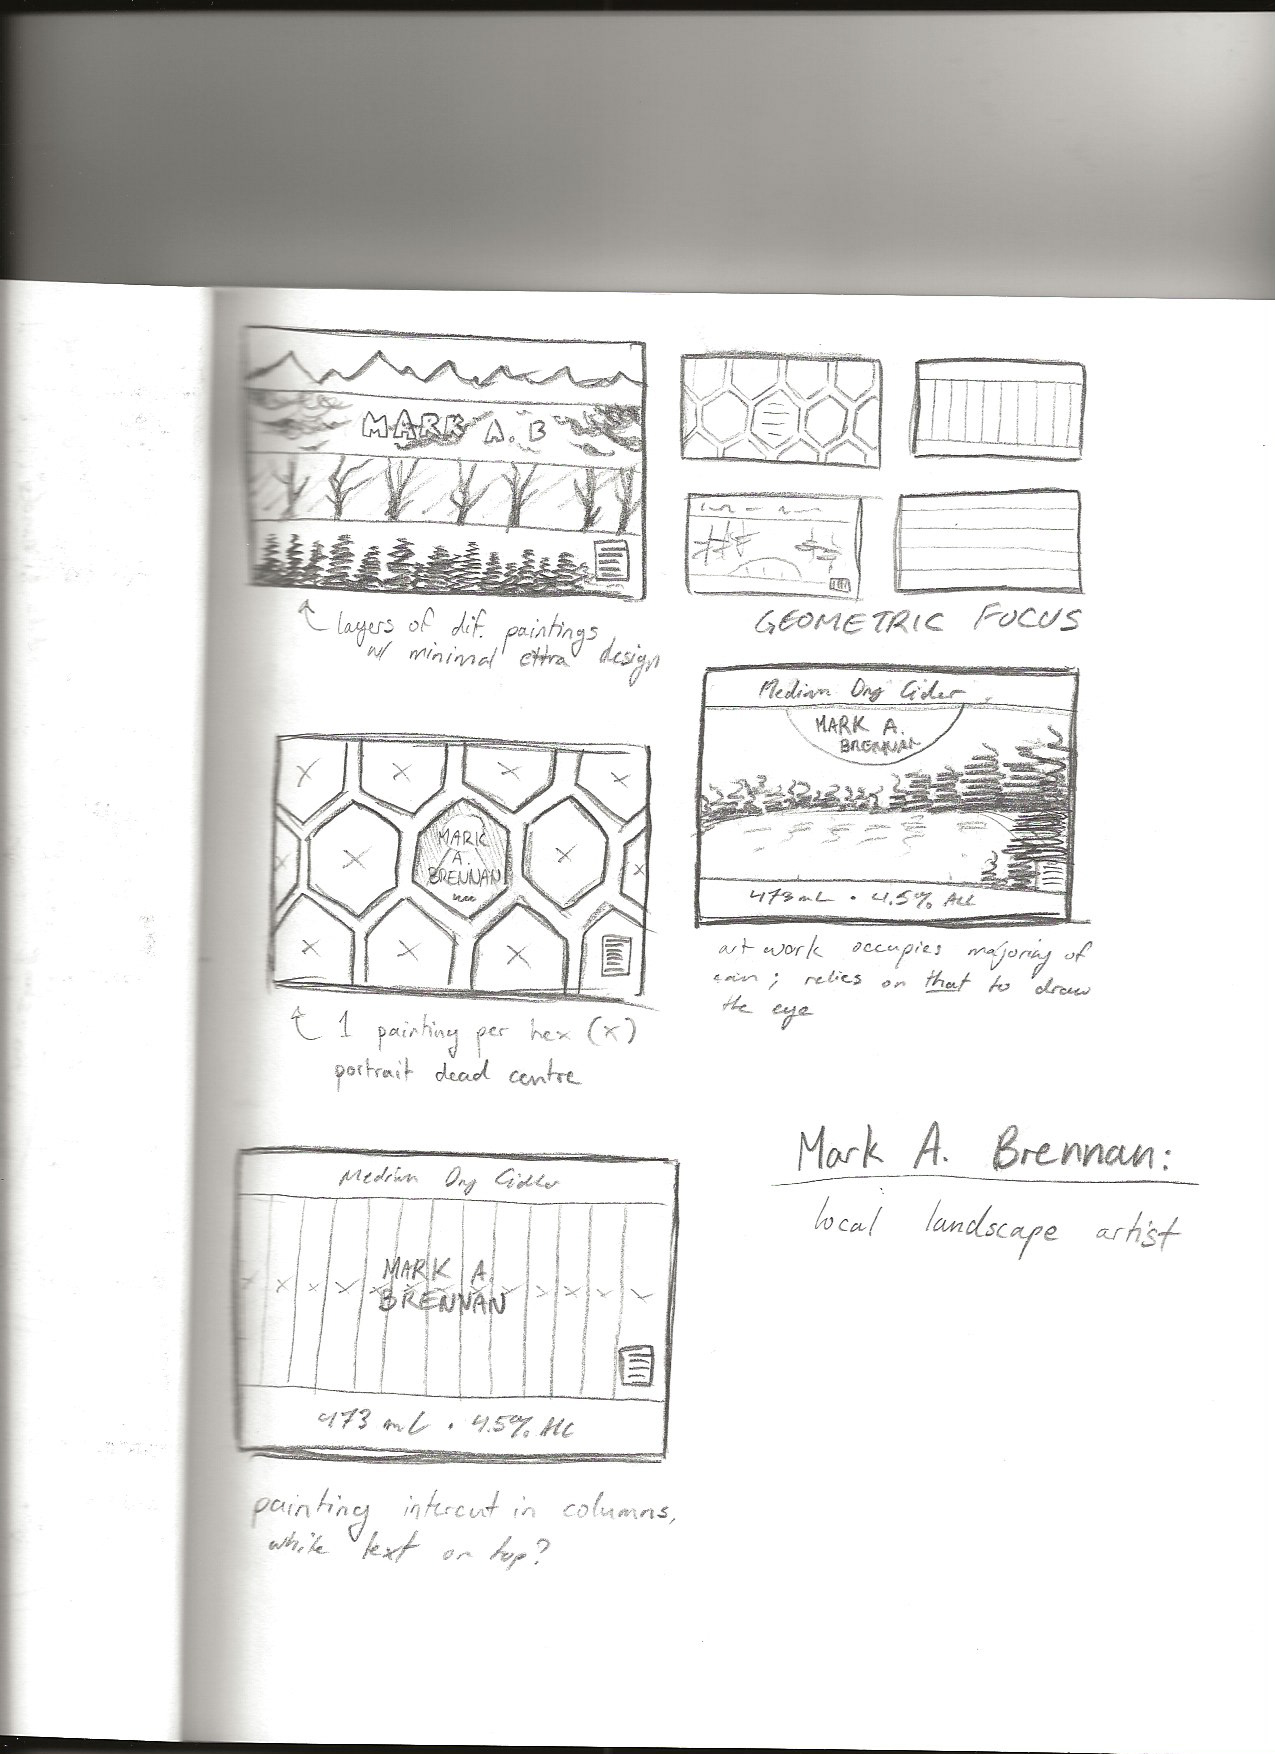 MARK A. B
layers of dif. paintings
w/ minimal extra design
GEOMETRIC FOCUS
Medium Dry Cider
MARK A.
BRENNAN
473 mL • 4.5% ALC
art work occupies majority of
can; relies on that to draw
the eye
MARK
A.
BRENNAN
1 painting per hex (x)
portrait dead centre
Mark A. Brennan:
local landscape artist
Medium Dry Cider
MARK A.
BRENNAN
473 mL • 4.5% ALC
painting intercut in columns,
white text on top?